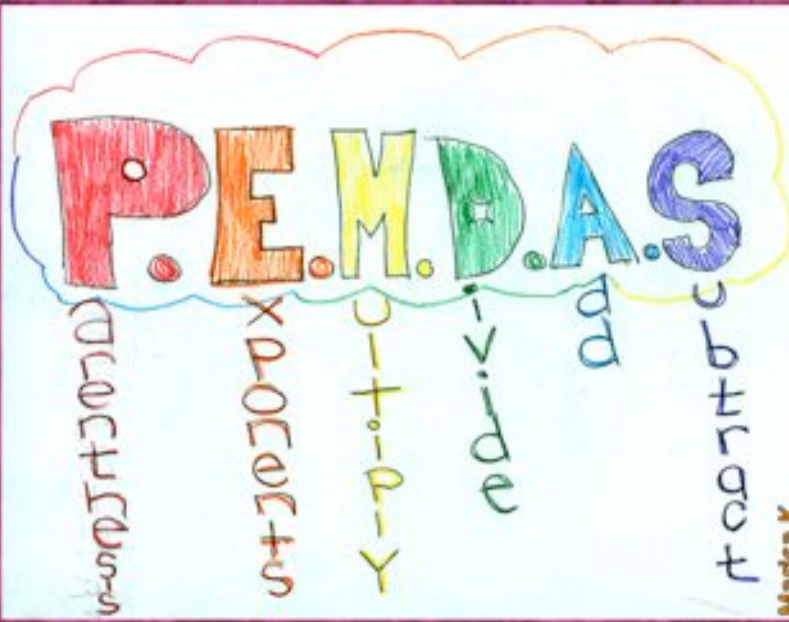 P.E.M.D.A.S
arenthesis
xponents
ultiply
ivide
dd
ubtract